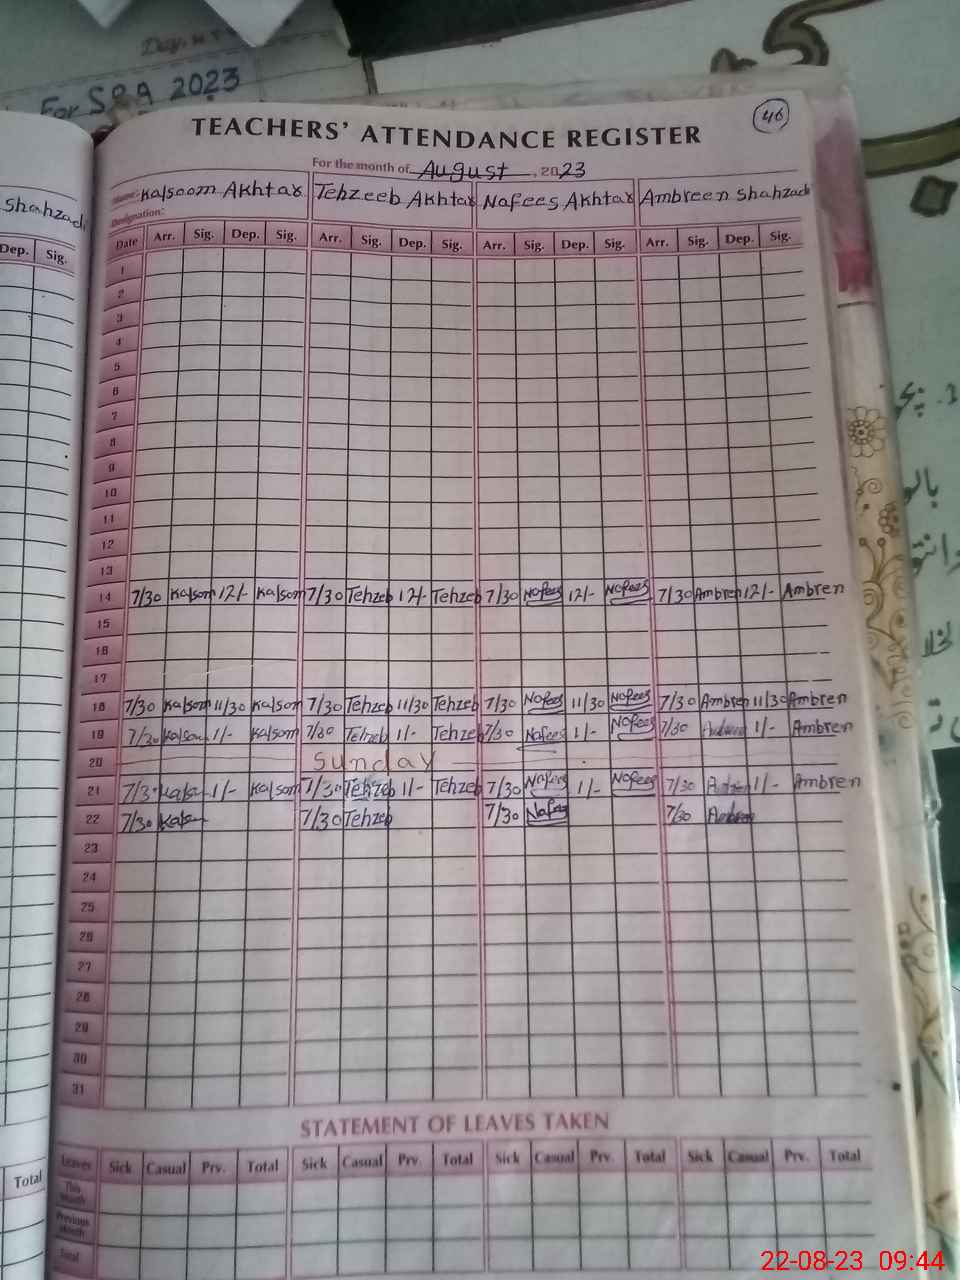 Day.
For SBA 2023
46
TEACHERS' ATTENDANCE REGISTER
For the month of August, 2023
Shahzadi
Name: Kalsoom Akhtar Tehzeeb Akhtar Nafees Akhtar Ambreen Shahzadi
Designation:
Dep. Sig.
Date Arr. Sig. Dep. Sig. Arr. Sig. Dep. Sig. Arr. Sig. Dep. Sig. Arr. Sig. Dep. Sig.
1
2
3
4
5
6
7
8
9
10
11
12
13
14 7/30 Kalsom 12/- Kalsom 7/30 Tehzeb 12/- Tehzeb 7/30 Nafees 12/- Nafees 7/30 Ambren 12/- Ambren
15
16
17
18 7/30 Kalsom 11/30 Kalsom 7/30 Tehzeb 11/30 Tehzeb 7/30 Nafees 11/30 Nafees 7/30 Ambren 11/30 Ambren
19 7/30 Kalsom 1/- Kalsom 7/30 Tehzeb 1/- Tehzeb 7/30 Nafees 1/- Nafees 7/30 1/- Ambren
20 Sunday
21 7/30 Kalsom 1/- Kalsom 7/30 Tehzeb 1/- Tehzeb 7/30 Nafees 1/- Nafees 7/30 1/- Ambren
22 7/30 Kalsom 7/30 Tehzeb 7/30 Nafees 7/30 Ambren
23
24
25
26
27
28
29
30
31
STATEMENT OF LEAVES TAKEN
Leaves Sick Casual Prv. Total Sick Casual Prv. Total Sick Casual Prv. Total Sick Casual Prv. Total
This Month
Total
Previous Month
Total
22-08-23 09:44